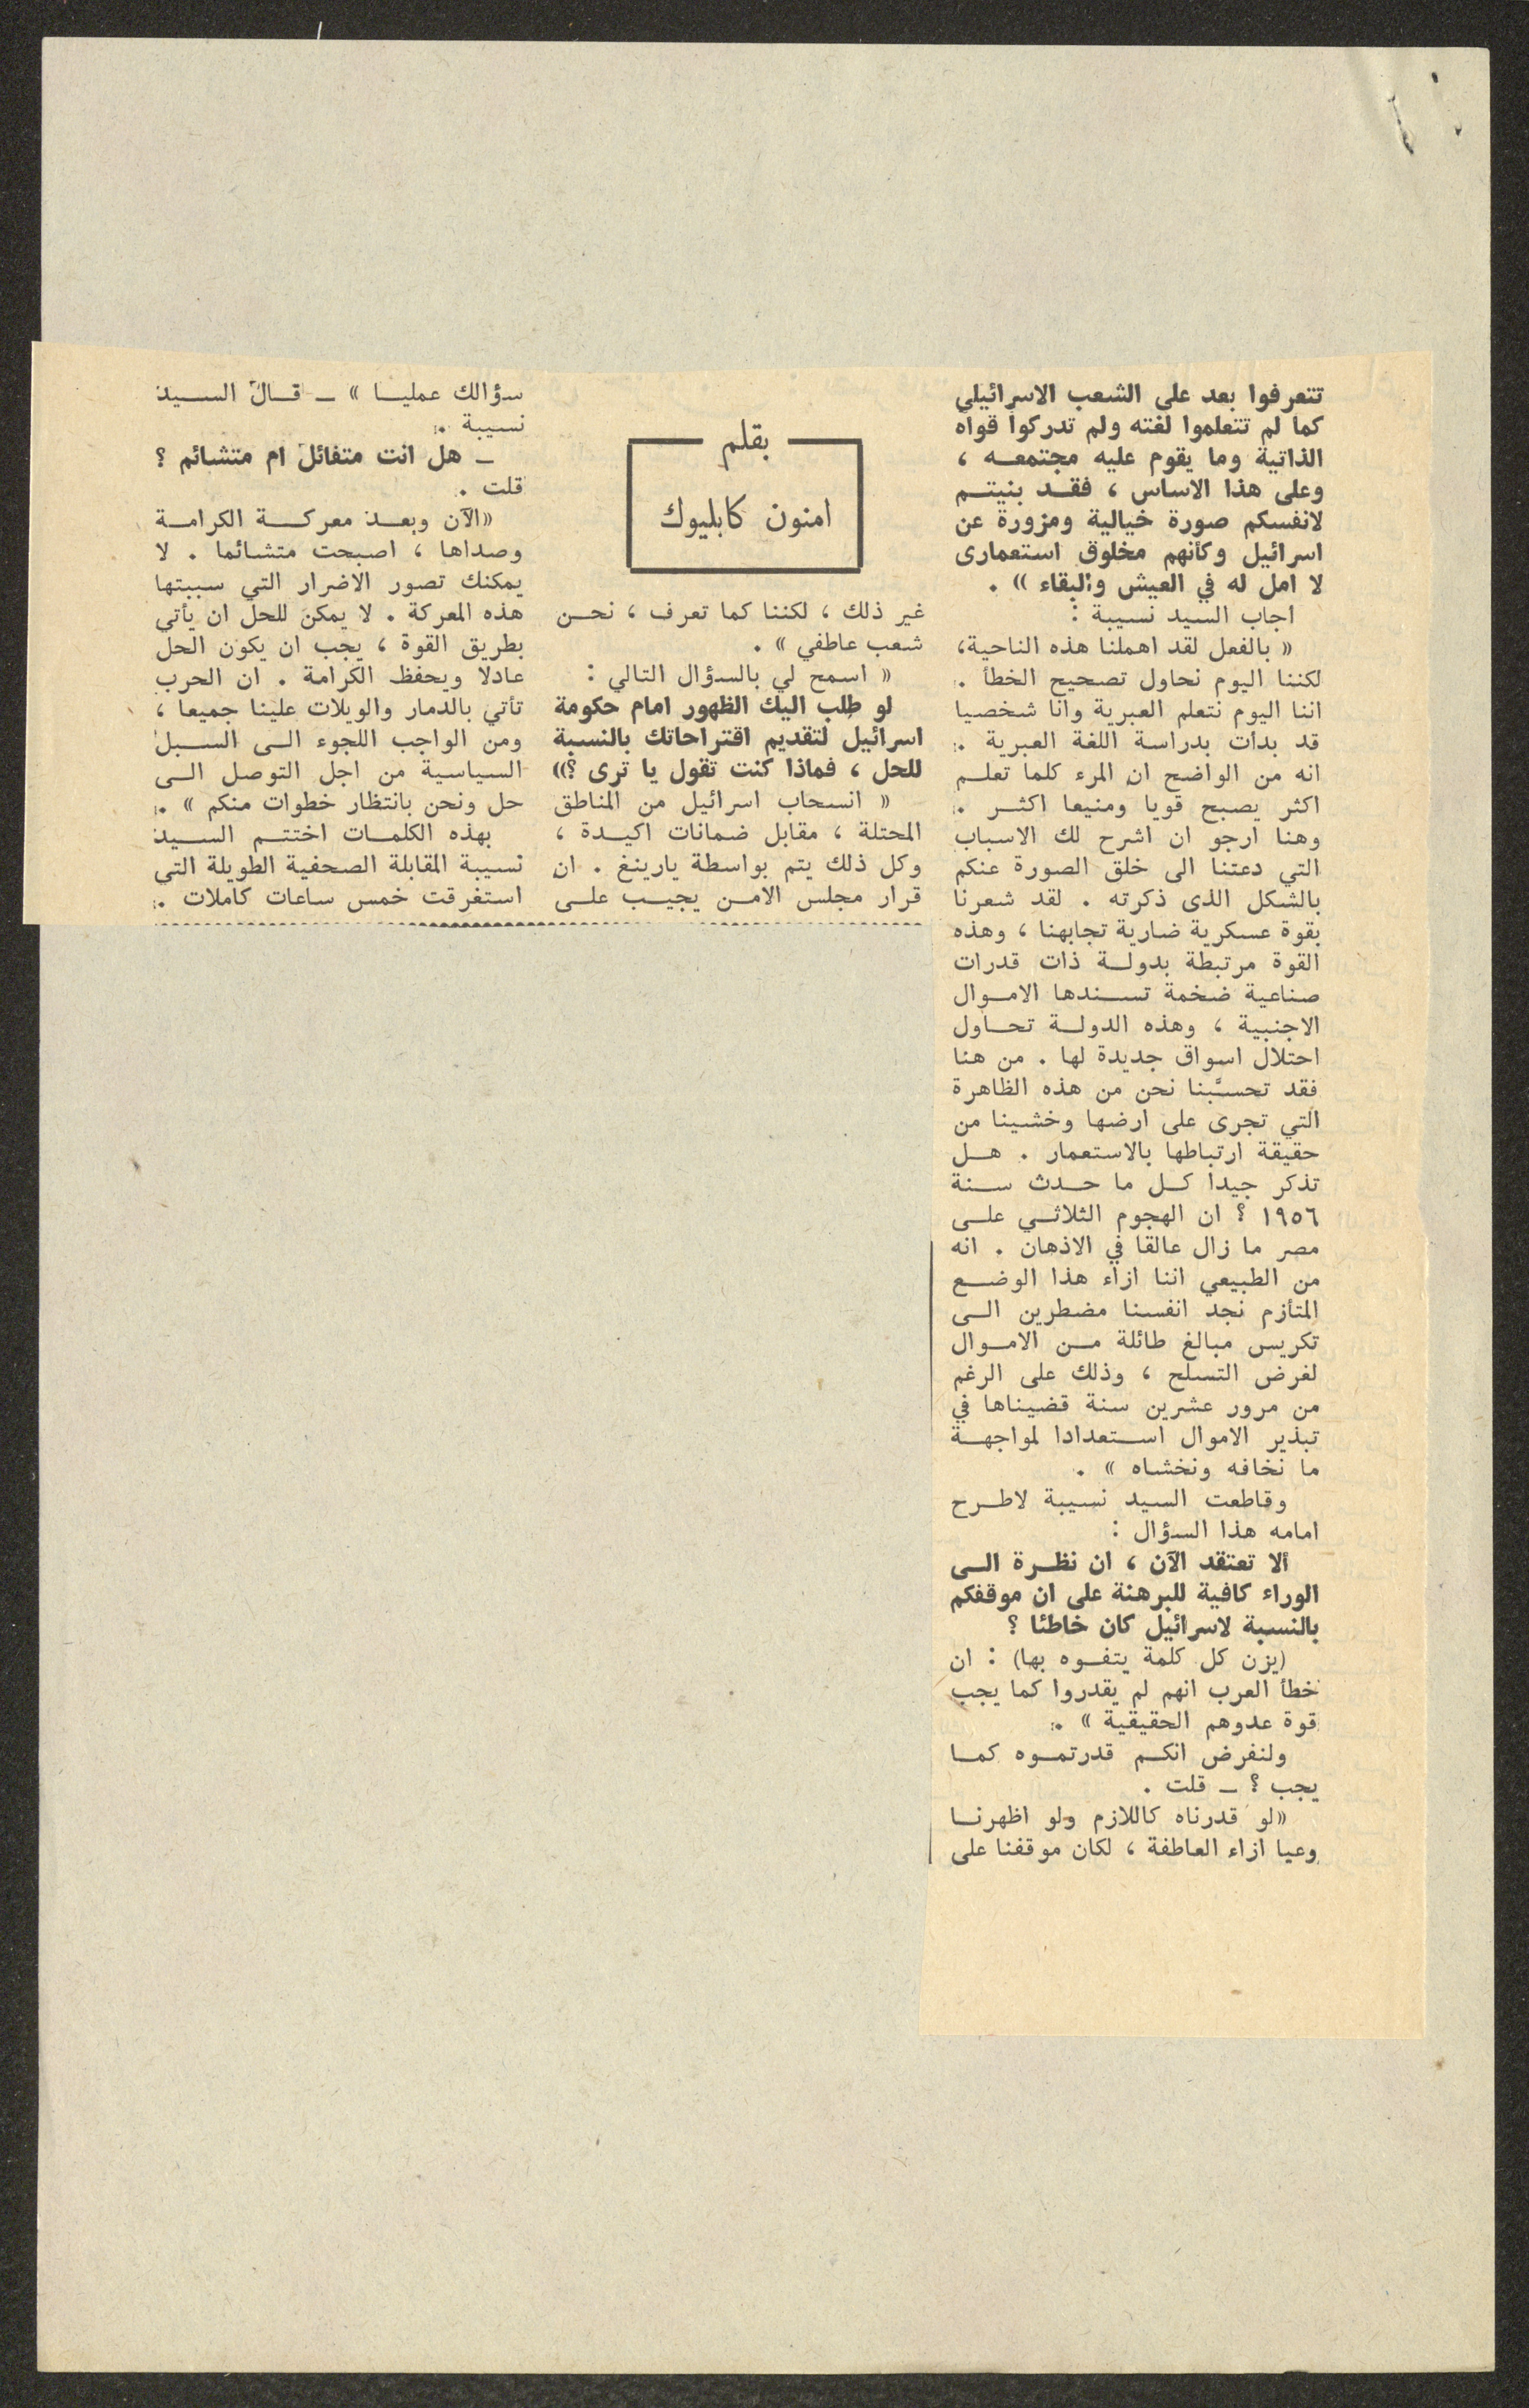 تتعرفوا بعد على الشعب الاسرائيلي
كما لم تتعلموا لغته ولم تدركوا قواه
الذاتية وما يقوم عليه مجتمعـه ،
وعلى هذا الاساس ، فقـد بنيتـم
لانفسكم صورة خيالية ومزورة عن
اسرائيل وكأنهم مخلوق استعمارى
لا امل له في العيش والبقاء » .
اجاب السيد نسيبة :
« بالفعل لقد اهملنا هذه الناحية،
لكننا اليوم نحاول تصحيح الخطأ .
اننا اليوم نتعلم العبرية وانا شخصيا
قد بدأت بدراسة اللغة العبرية .
انه من الواضح ان المرء كلما تعلـم
اكثر يصبح قويا ومنيعا اكثـر .
وهنا ارجو ان اشرح لك الاسباب
التي دعتنا الى خلق الصورة عنكم
بالشكل الذى ذكرته . لقد شعرنا
بقوة عسكرية ضارية تجابهنا ، وهذه
القوة مرتبطة بدولـة ذات قدرات
صناعية ضخمة تسـندها الامـوال
الاجنبية ، وهذه الدولـة تحـاول
احتلال اسواق جديدة لها . من هنا
فقد تحسَّبنا نحن من هذه الظاهرة
التي تجرى على ارضها وخشينا من
حقيقة ارتباطها بالاستعمار . هـل
تذكر جيدا كـل ما حـدث سـنة
١٩٥٦ ؟ ان الهجوم الثلاثـي علـى
مصر ما زال عالقا في الاذهان . انه
من الطبيعي اننا ازاء هذا الوضـع
المتأزم نجد انفسنا مضطرين الـى
تكريس مبالغ طائلة مـن الامـوال
لغرض التسلح ، وذلك على الرغم
من مرور عشرين سنة قضيناها في
تبذير الاموال اسـتعدادا لمواجهـة
ما نخافه ونخشاه » .
وقاطعت السيد نسيبة لاطـرح
امامه هذا السؤال :
ألا تعتقد الآن ، ان نظـرة الـى
الوراء كافية للبرهنة على ان موقفكم
بالنسبة لاسرائيل كان خاطئا ؟
(يزن كل كلمة يتفـوه بها) : ان
خطأ العرب انهم لم يقدروا كما يجب
قوة عدوهم الحقيقية » .
ولنفرض انكـم قدرتمـوه كمـا
يجب ؟ ـ قلت .
«لو قدرناه كاللازم ولو اظهرنـا
وعيا ازاء العاطفة ، لكان موقفنا على
بقلم
امنون كابليوك
غير ذلك ، لكننا كما تعرف ، نحـن
شعب عاطفي » .
« اسمح لي بالسؤال التالي :
لو طلب اليك الظهور امام حكومة
اسرائيل لتقديم اقتراحاتك بالنسبة
للحل ، فماذا كنت تقول يا ترى ؟»
« انسحاب اسرائيل من المناطق
المحتلة ، مقابل ضمانات اكيـدة ،
وكل ذلك يتم بواسطة يارينغ . ان
قرار مجلس الامـن يجيـب علـى
سؤالك عمليـا » ـ قـال السـيد
نسيبة .
ـ هل انت متفائل ام متشائم ؟
قلت .
«الآن وبعـد معركـة الكرامـة
وصداها ، اصبحت متشائما . لا
يمكنك تصور الاضرار التي سببتها
هذه المعركة . لا يمكن للحل ان يأتي
بطريق القوة ، يجب ان يكون الحل
عادلا ويحفظ الكرامة . ان الحرب
تأتي بالدمار والويلات علينا جميعا ،
ومن الواجب اللجوء الـى السـبل
السياسية من اجل التوصل الـى
حل ونحن بانتظار خطوات منكم » .
بهذه الكلمـات اختتـم السـيد
نسيبة المقابلة الصحفية الطويلة التي
استغرقت خمس ساعات كاملات .